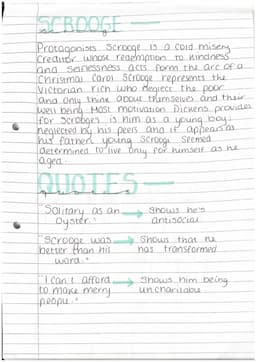 SCROOGE —
Protagonists Scrooge is a cold misery
creditor whose redemption to kindness
and selflessness acts form the arc of a
Christmas Carol Scrooge represents the
Victorian rich who neglect the poor
and only think about themselves and their
well being. Most motivation Dickens provides
for Scrooges is him as a young boy.
neglected by his peers and it appears as
his father. young Scrooge seemed
determined to live only for himself as he
aged.
QUOTES —
"Solitary as an → shows he's
oyster." antisocial
"Scrooge was → shows that he
better than his has transformed
word."
"I can't afford → shows him being
to make merry uncharitable
people."